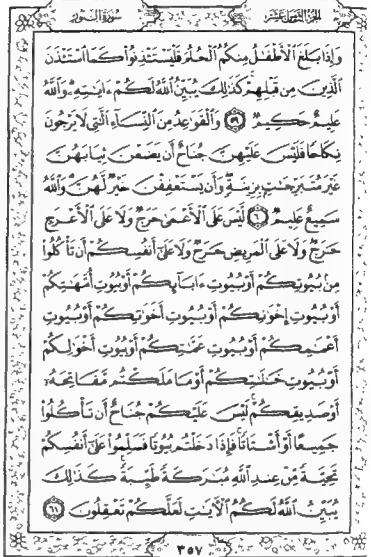 الجزء الثامن عشر
سورة النور
وَإِذَا بَلَغَ ٱلْأَطْفَٰلُ مِنكُمُ ٱلْحُلُمَ فَلْيَسْتَـْٔذِنُوا۟ كَمَا ٱسْتَـْٔذَنَ
ٱلَّذِينَ مِن قَبْلِهِمْ ۚ كَذَٰلِكَ يُبَيِّنُ ٱللَّهُ لَكُمْ ءَايَٰتِهِۦ ۗ وَٱللَّهُ
عَلِيمٌ حَكِيمٌ ٥٩ وَٱلْقَوَٰعِدُ مِنَ ٱلنِّسَآءِ ٱلَّٰتِى لَا يَرْجُونَ
نِكَاحًا فَلَيْسَ عَلَيْهِنَّ جُنَاحٌ أَن يَضَعْنَ ثِيَابَهُنَّ
غَيْرَ مُتَبَرِّجَٰتٍۭ بِزِينَةٍ ۖ وَأَن يَسْتَعْفِفْنَ خَيْرٌ لَّهُنَّ ۗ وَٱللَّهُ
سَمِيعٌ عَلِيمٌ ٦٠ لَّيْسَ عَلَى ٱلْأَعْمَىٰ حَرَجٌ وَلَا عَلَى ٱلْأَعْرَجِ
حَرَجٌ وَلَا عَلَى ٱلْمَرِيضِ حَرَجٌ وَلَا عَلَىٰٓ أَنفُسِكُمْ أَن تَأْكُلُوا۟
مِنۢ بُيُوتِكُمْ أَوْ بُيُوتِ ءَابَآئِكُمْ أَوْ بُيُوتِ أُمَّهَٰتِكُمْ
أَوْ بُيُوتِ إِخْوَٰنِكُمْ أَوْ بُيُوتِ أَخَوَٰتِكُمْ أَوْ بُيُوتِ
أَعْمَٰمِكُمْ أَوْ بُيُوتِ عَمَّٰتِكُمْ أَوْ بُيُوتِ أَخْوَٰلِكُمْ
أَوْ بُيُوتِ خَٰلَٰتِكُمْ أَوْ مَا مَلَكْتُم مَّفَاتِحَهُۥٓ
أَوْ صَدِيقِكُمْ ۚ لَيْسَ عَلَيْكُمْ جُنَاحٌ أَن تَأْكُلُوا۟
جَمِيعًا أَوْ أَشْتَاتًا ۚ فَإِذَا دَخَلْتُم بُيُوتًا فَسَلِّمُوا۟ عَلَىٰٓ أَنفُسِكُمْ
تَحِيَّةً مِّنْ عِندِ ٱللَّهِ مُبَٰرَكَةً طَيِّبَةً ۚ كَذَٰلِكَ
يُبَيِّنُ ٱللَّهُ لَكُمُ ٱلْءَايَٰتِ لَعَلَّكُمْ تَعْقِلُونَ ٦١
٣٥٧